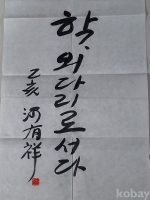 학, 외다리로서다
乙亥 河有祥
kobay